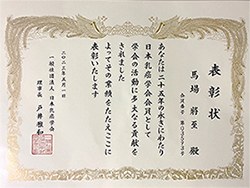 表彰状
馬場 將至 殿
あなたは二十五年の永きにわたり
日本乳癌学会会員として
学会の活動に多大なる貢献を
されました
よってその業績をたたえここに
表彰いたします
二〇二三年五月一日
一般社団法人 日本乳癌学会
理事長 戸井雅和